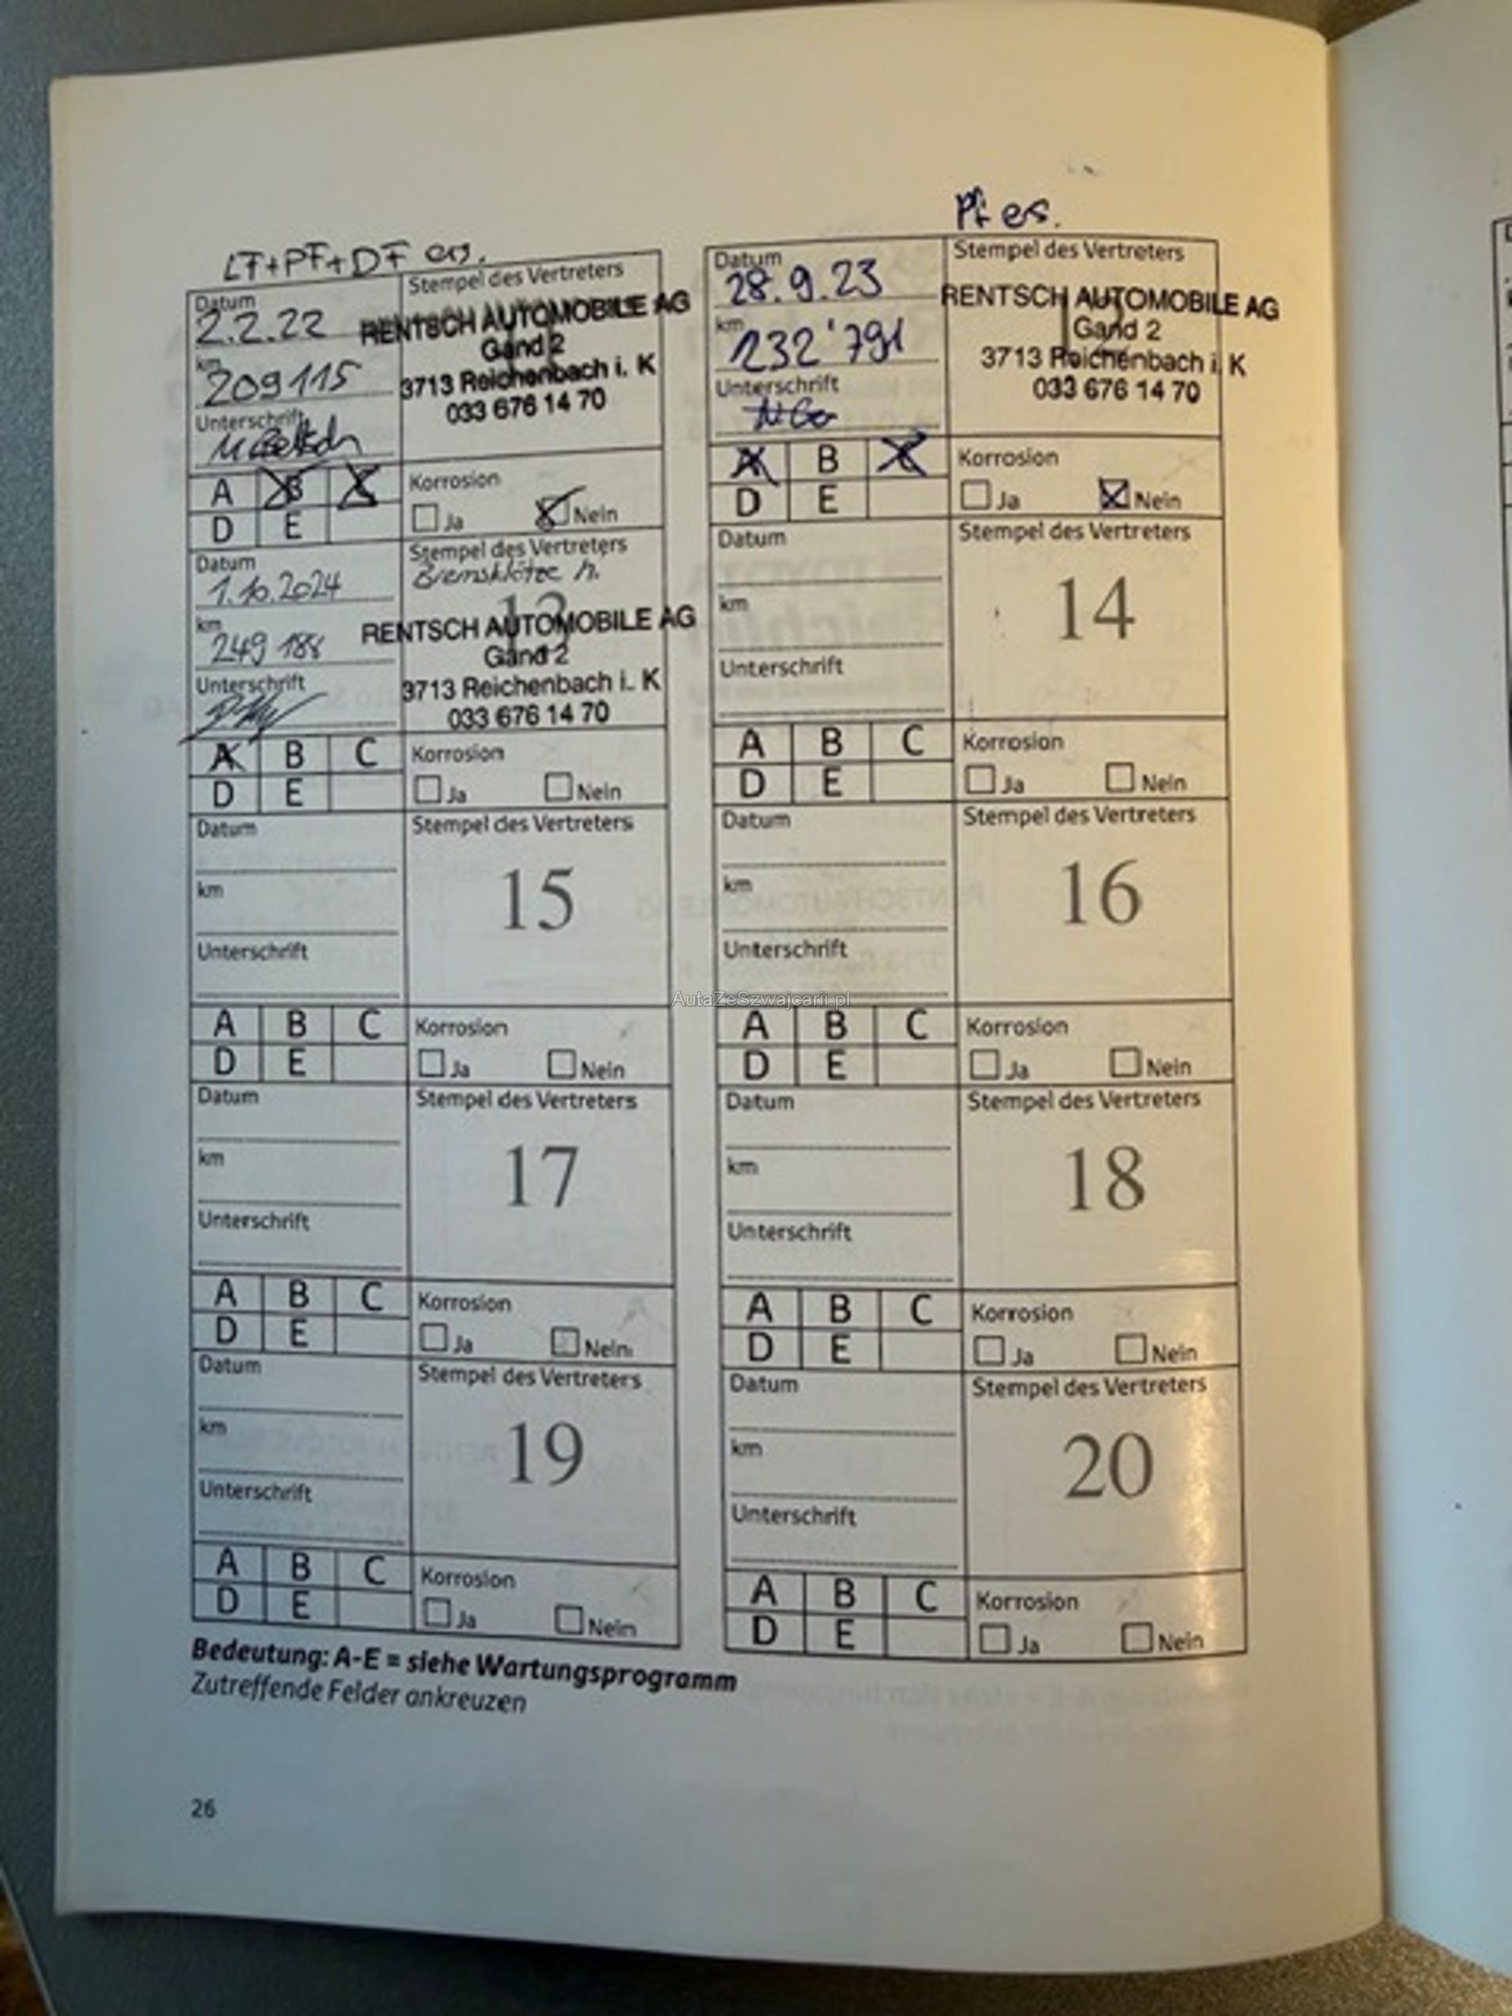 LF+PF+DF ers.
Datum
2.2.22
km
209115
Unterschrift
Stempel des Vertreters
RENTSCH AUTOMOBILE AG
Gand 2
3713 Reichenbach i. K
033 676 14 70
A B C
D E
Korrosion
Ja Nein
Pf ers.
Datum
28.9.23
km
232'791
Unterschrift
Stempel des Vertreters
12
RENTSCH AUTOMOBILE AG
Gand 2
3713 Reichenbach i. K
033 676 14 70
A B C
D E
Korrosion
Ja Nein
Datum
1.10.2024
km
249 188
Unterschrift
Stempel des Vertreters
Bremsklötze h.
13
RENTSCH AUTOMOBILE AG
Gand 2
3713 Reichenbach i. K
033 676 14 70
A B C
D E
Korrosion
Ja Nein
Datum
km
Unterschrift
Stempel des Vertreters
14
A B C
D E
Korrosion
Ja Nein
Datum
km
Unterschrift
Stempel des Vertreters
15
A B C
D E
Korrosion
Ja Nein
Datum
km
Unterschrift
Stempel des Vertreters
16
A B C
D E
Korrosion
Ja Nein
AutaZeSzwajcarii.pl
Datum
km
Unterschrift
Stempel des Vertreters
17
A B C
D E
Korrosion
Ja Nein
Datum
km
Unterschrift
Stempel des Vertreters
18
A B C
D E
Korrosion
Ja Nein
Datum
km
Unterschrift
Stempel des Vertreters
19
A B C
D E
Korrosion
Ja Nein
Datum
km
Unterschrift
Stempel des Vertreters
20
A B C
D E
Korrosion
Ja Nein
Bedeutung: A-E = siehe Wartungsprogramm
Zutreffende Felder ankreuzen
26